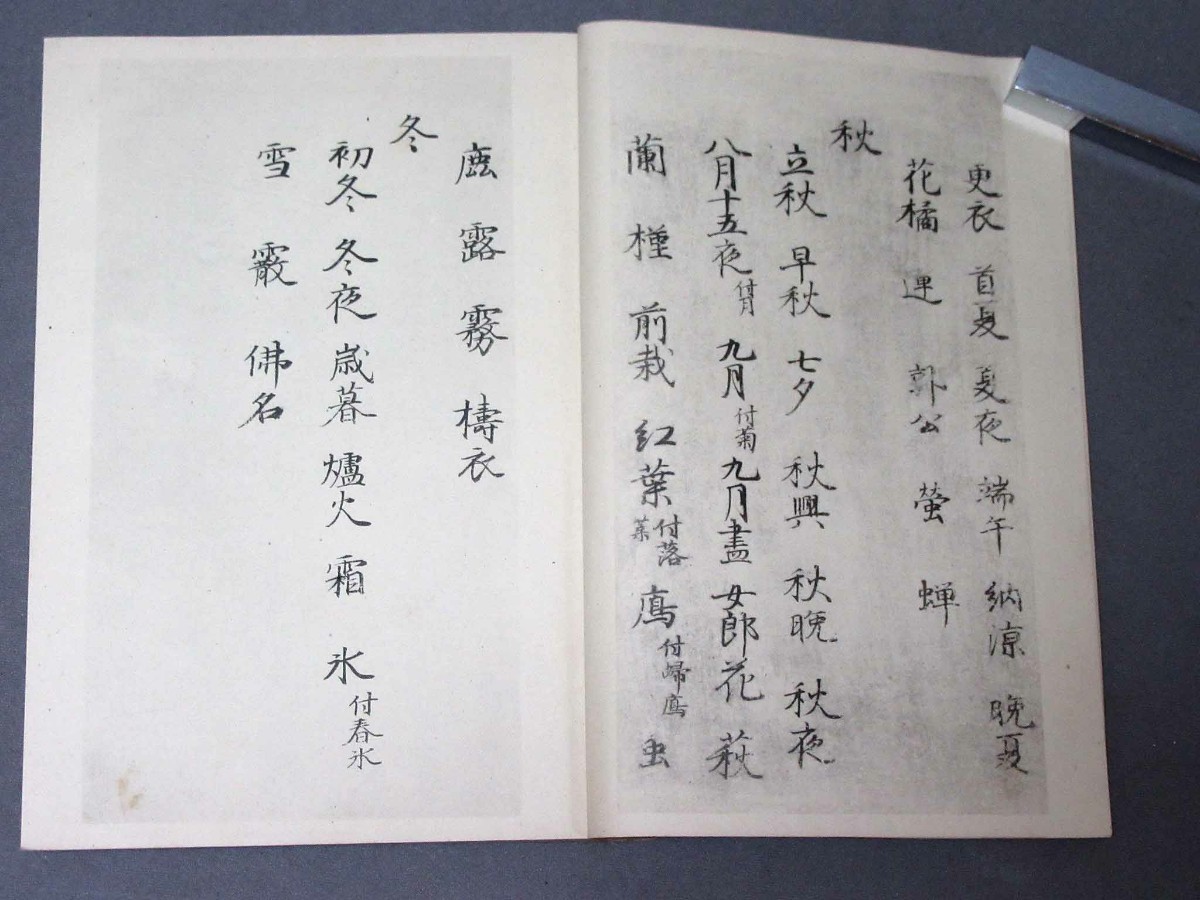 更衣 首夏 夏夜 端午 納涼 晩夏
花橘 連 郭公 螢 蝉
秋
立秋 早秋 七夕 秋興 秋晩 秋夜
八月十五夜付月 九月付菊 九月盡 女郎花 萩
蘭 槿 前栽 紅葉付落葉 鴈付歸鴈 虫
鹿 露 霧 擣衣
冬
初冬 冬夜 歳暮 爐火 霜 氷付春氷
雪 霰 佛名